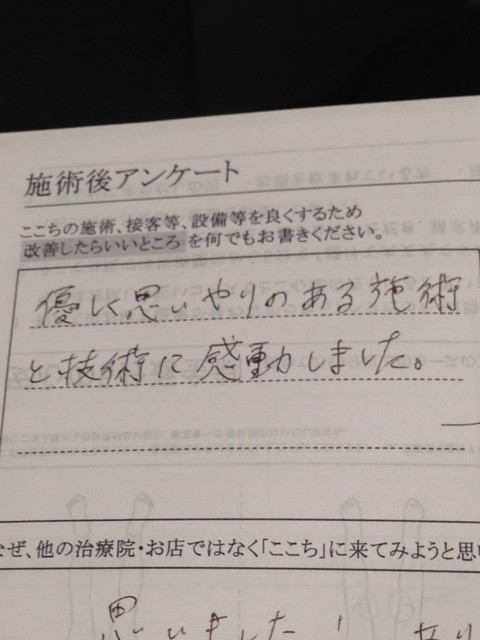 施術後アンケート
ここちの施術、接客等、設備等を良くするため
改善したらいいところ を何でもお書きください。
優しく思いやりのある施術
と技術に感動しました。
なぜ、他の治療院・お店ではなく「ここち」に来てみようと思い
思いました！